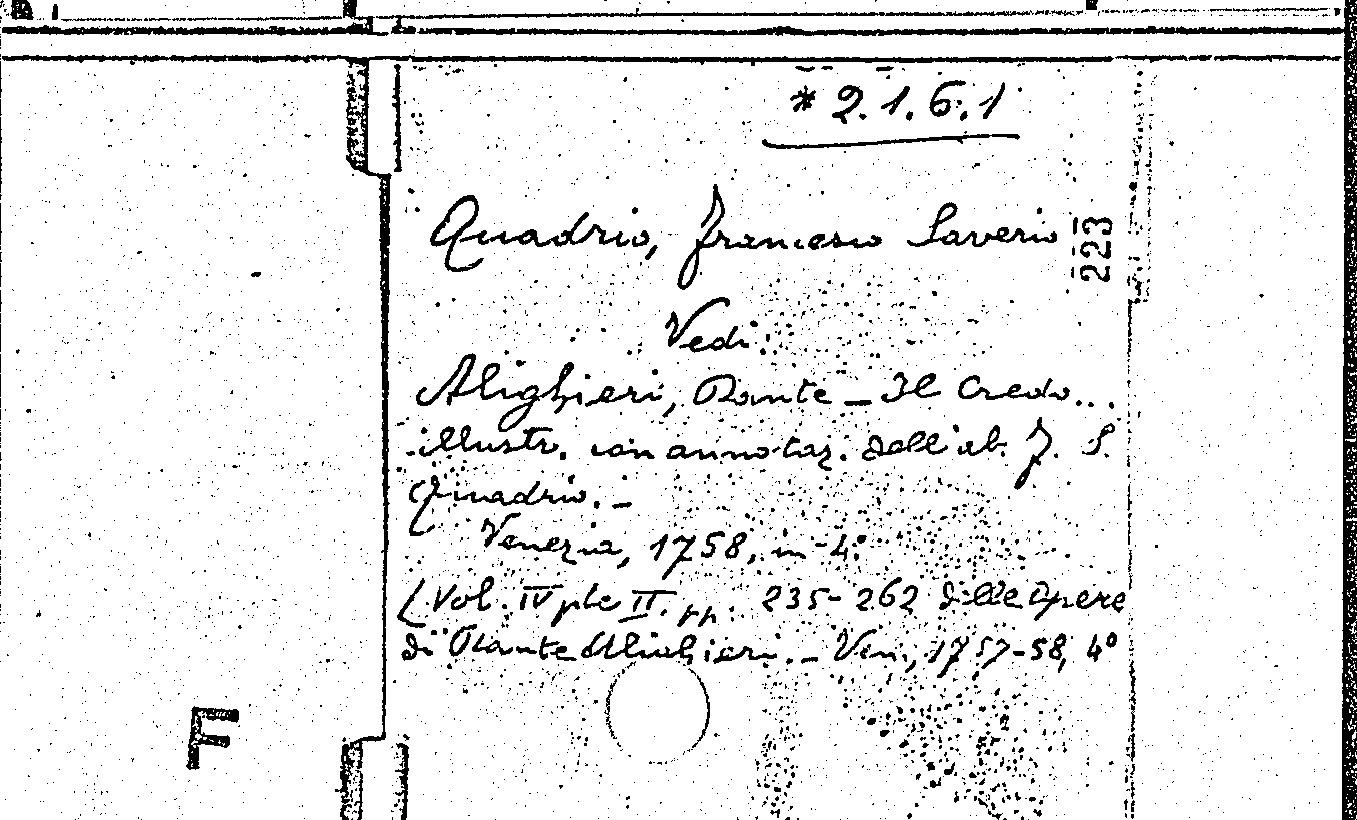 * 2.1.6.1
Quadrio, Francesco Saverio
223
Vedi
Alighieri, Dante - Il Credo...
illustr. con annotaz. dall'ab. F. S.
Quadrio. -
Venezia, 1758, in-4°
(Vol. IV pte II. pp. 235-262 delle Opere
di Dante Alighieri. - Ven., 1757-58, 4°
F